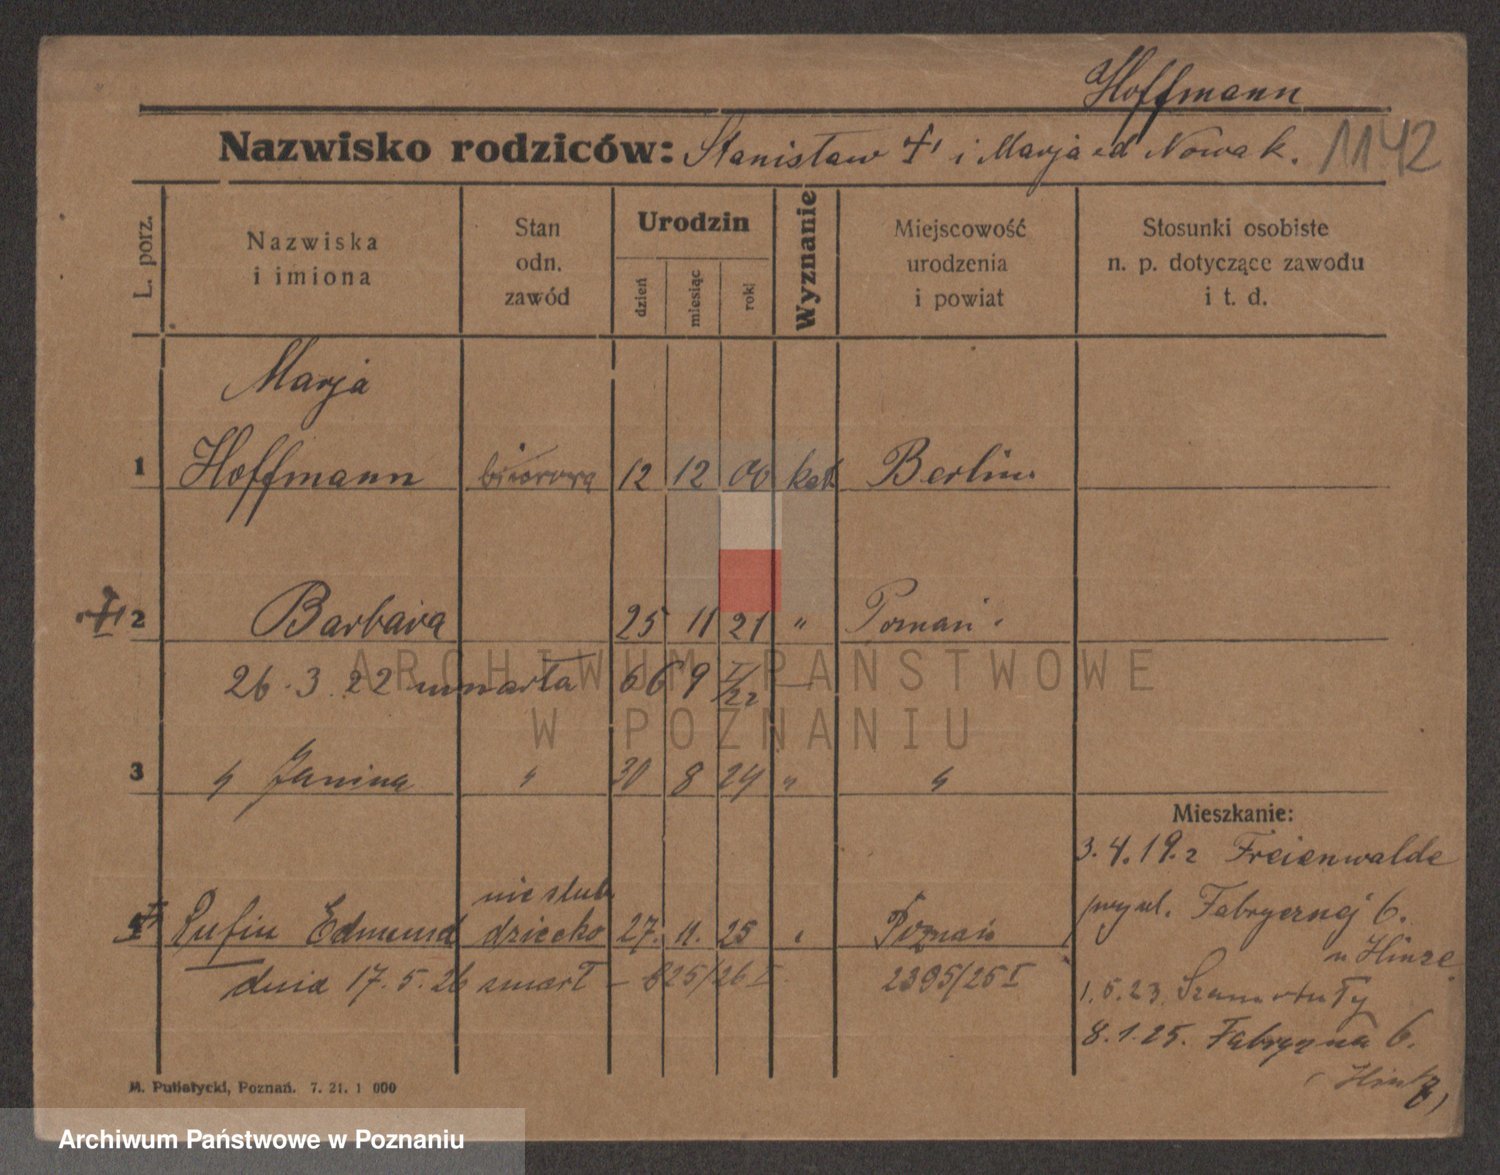 Hoffmann
Nazwisko rodziców: Stanisław † i Marja od Nowak. 1142
L. porz.
Nazwiska
i imiona
Stan
odn.
zawód
Urodzin
dzień
miesiąc
rok
Wyznanie
Miejscowość
urodzenia
i powiat
Stosunki osobiste
n. p. dotyczące zawodu
i t. d.
Marja
1 Hoffmann biurową 12 12 00 kat Berlin
† 2 Barbara 25 11 21 " Poznań
26.3.22 umarła 669 I/22 —
3 " Janina " 30 8 24 " "
Mieszkanie:
3.4.19. z Freienwalde
przy ul. Fabrycznej 6.
u Hinze
nieślub
4 † Rufin Edmund dziecko 27. 11. 25 " Poznań
dnia 17.5.26 zmarł – 825/26 I 2395/25 I
1.5.23. Szamotuły
8.1.25. Fabryczna 6.
M. Putiatycki, Poznań. 7. 21. 1 000
ARCHIWUM PAŃSTWOWE
W POZNANIU
Archiwum Państwowe w Poznaniu